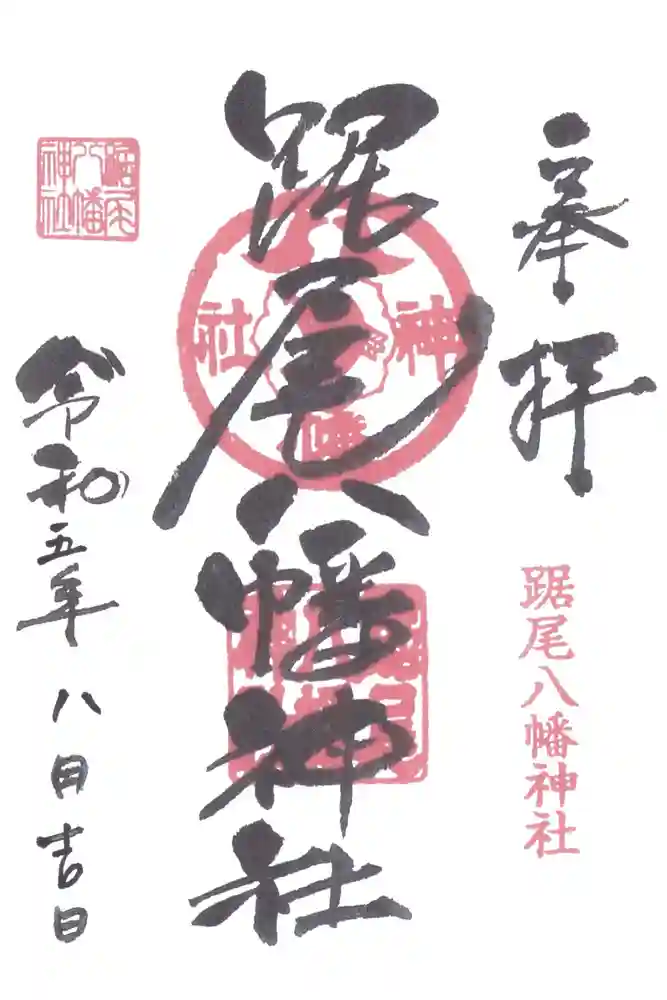 奉拝
踞尾八幡神社
踞尾八幡神社
神社
令和五年八月吉日
踞尾八幡神社